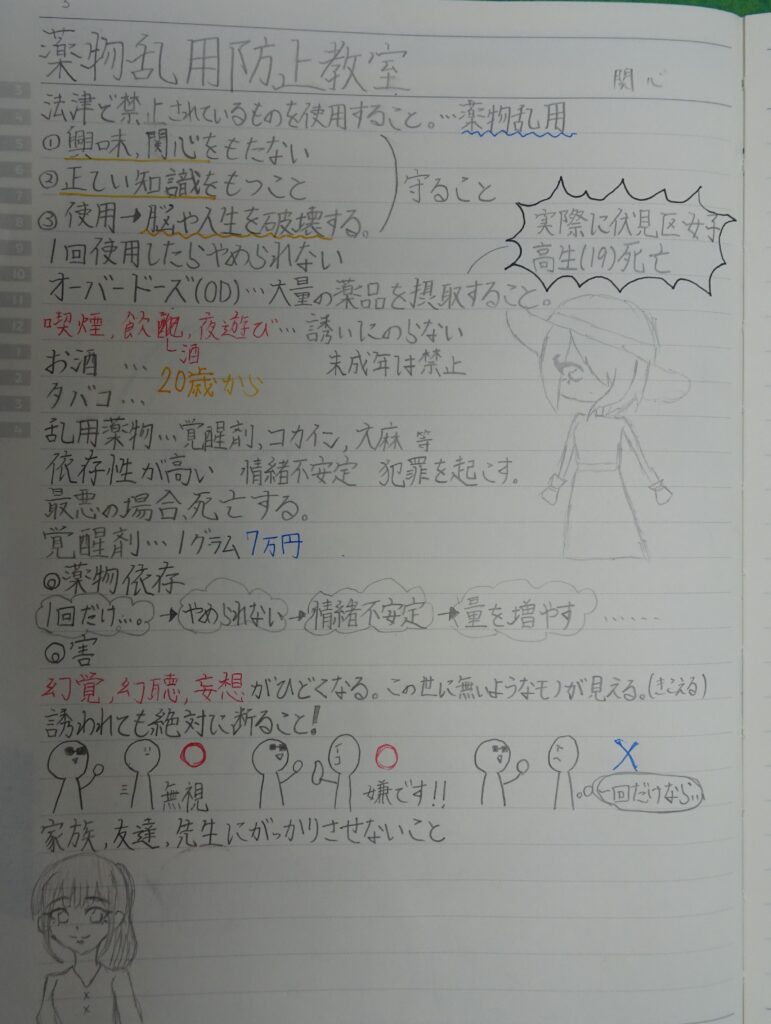 薬物乱用防止教室
関心
法律で禁止されているものを使用すること。…薬物乱用
①興味,関心をもたない
②正しい知識をもつこと
③使用→脳や人生を破壊する。
守ること
1回使用したらやめられない
実際に伏見区女子
高生(19)死亡
オーバードーズ(OD)…大量の薬品を摂取すること。
喫煙,飲酒,夜遊び…誘いにのらない
お酒 …
タバコ…
20歳から
未成年は禁止
乱用薬物…覚醒剤,コカイン,大麻 等
依存性が高い 情緒不安定 犯罪を起こす。
最悪の場合、死亡する。
覚醒剤…1グラム7万円
◎薬物依存
1回だけ…。→やめられない→情緒不安定→量を増やす ……
◎害
幻覚,幻聴,妄想がひどくなる。この世に無いようなモノが見える。(きこえる)
誘われても絶対に断ること!
無視
嫌です!!
一回だけなら…
家族,友達,先生にがっかりさせないこと